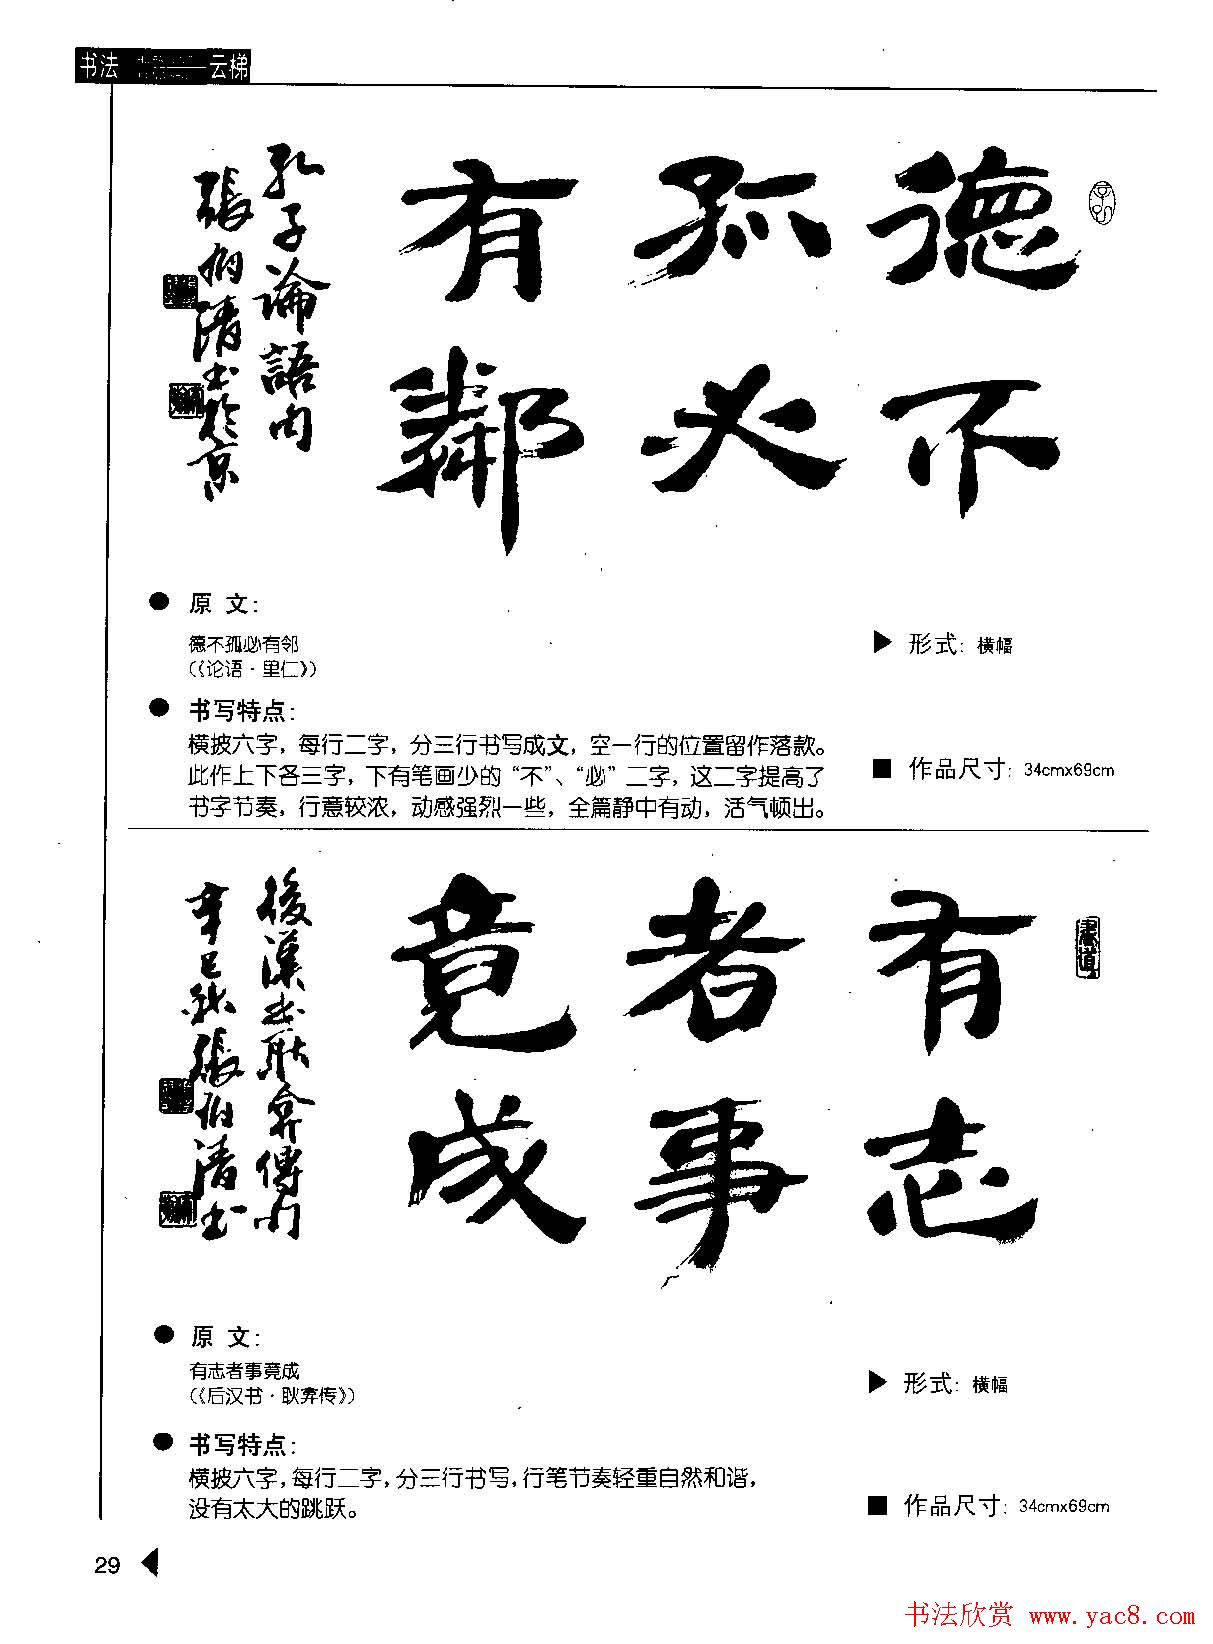 书法
云梯
德不
孤必
有鄰
孔子論語句
張伯清书於京
原文：
德不孤必有邻
（《论语·里仁》）
▶ 形式：横幅
书写特点：
横披六字，每行二字，分三行书写成文，空一行的位置留作落款。
此作上下各三字，下有笔画少的“不”、“必”二字，这二字提高了
书字节奏，行意较浓，动感强烈一些，全篇静中有动，活气顿出。
■ 作品尺寸：34cmx69cm
書道
有志
者事
竟成
後漢书耿弇傳句
辛巳秋張伯清书
原文：
有志者事竟成
（《后汉书·耿弇传》）
▶ 形式：横幅
书写特点：
横披六字，每行二字，分三行书写，行笔节奏轻重自然和谐，
没有太大的跳跃。
■ 作品尺寸：34cmx69cm
29
书法欣赏 www.yac8.com